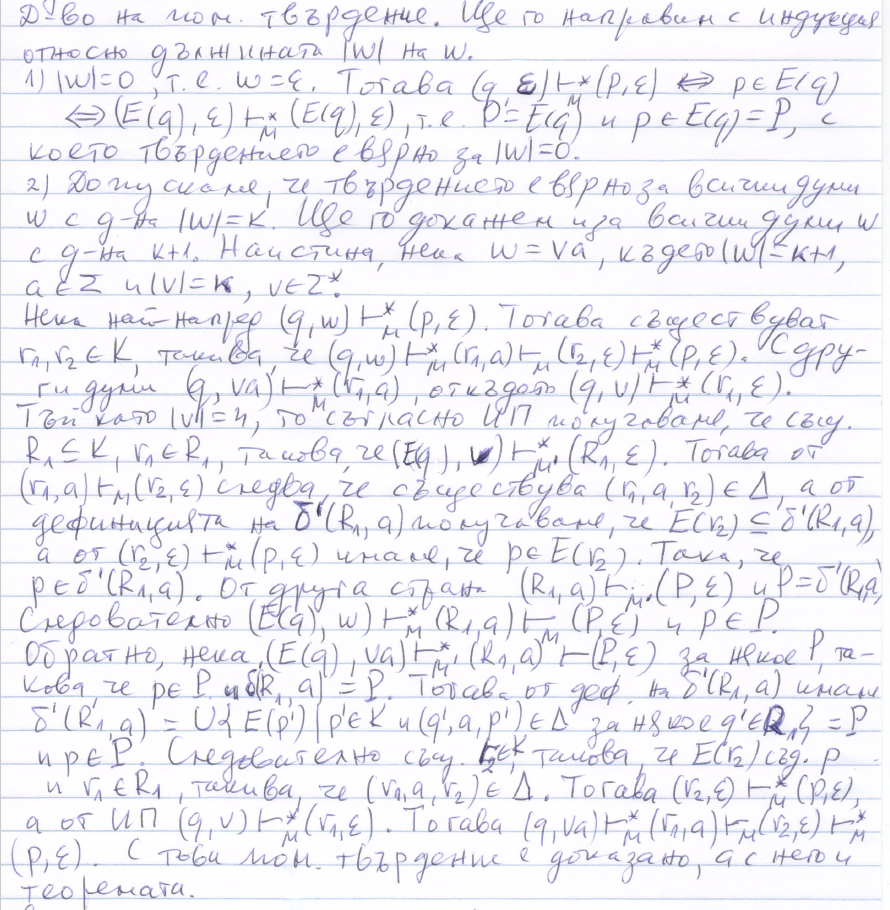 Д-во на пом. твърдение. Ще го направим с индукция
относно дължината |w| на w.
1) |w|=0, т.е. w=ε. Тогава (q, ε) ⊢*_M (p, ε) ⇔ p ∈ E(q)
⇔ (E(q), ε) ⊢*_M' (E(q), ε), т.е. P = E(q) и p ∈ E(q) = P, с
което твърдението е вярно за |w|=0.
2) Допускаме, че твърдението е вярно за всички думи
w с д-на |w|=k. Ще го докажем и за всички думи w
с д-на k+1. Наистина, нека w = va, където |w|=k+1,
a ∈ Σ и |v|=k, v ∈ Σ*.
Нека най-напред (q, w) ⊢*_M (p, ε). Тогава съществуват
r₁, r₂ ∈ K, такива, че (q, w) ⊢*_M (r₁, a) ⊢_M (r₂, ε) ⊢*_M (p, ε). С дру-
ги думи (q, va) ⊢*_M (r₁, a), откъдето (q, v) ⊢*_M (r₁, ε).
Тъй като |v|=n, то съгласно ИП получаваме, че същ.
R₁ ⊆ K, r₁ ∈ R₁, такова, че (E(q), v) ⊢*_M' (R₁, ε). Тогава от
(r₁, a) ⊢_M (r₂, ε) следва, че съществува (r₁, a, r₂) ∈ Δ, а от
дефиницията на δ'(R₁, a) получаваме, че E(r₂) ⊆ δ'(R₁, a),
а от (r₂, ε) ⊢*_M (p, ε) имаме, че p ∈ E(r₂). Така, че
p ∈ δ'(R₁, a). От друга страна (R₁, a) ⊢_M' (P, ε) и P = δ'(R₁, a)
Следователно (E(q), w) ⊢*_M' (R₁, a) ⊢_M' (P, ε) и p ∈ P.
Обратно, нека (E(q), va) ⊢*_M' (R₁, a) ⊢ (P, ε) за някое P, та-
кова, че p ∈ P и δ'(R₁, a) = P. Тогава от деф. на δ'(R₁, a) имаме
δ'(R₁, a) = ∪{E(p') | p' ∈ K и (q', a, p') ∈ Δ за някое q' ∈ R₁} = P
и p ∈ P. Следователно същ. r₂ ∈ K, такова, че E(r₂) съд. p
и r₁ ∈ R₁, такива, че (r₁, a, r₂) ∈ Δ. Тогава (r₂, ε) ⊢*_M (p, ε),
а от ИП (q, v) ⊢*_M (r₁, ε). Тогава (q, va) ⊢*_M (r₁, a) ⊢_M (r₂, ε) ⊢*_M
(p, ε). С това пом. твърдение е доказано, а с него и
теоремата.